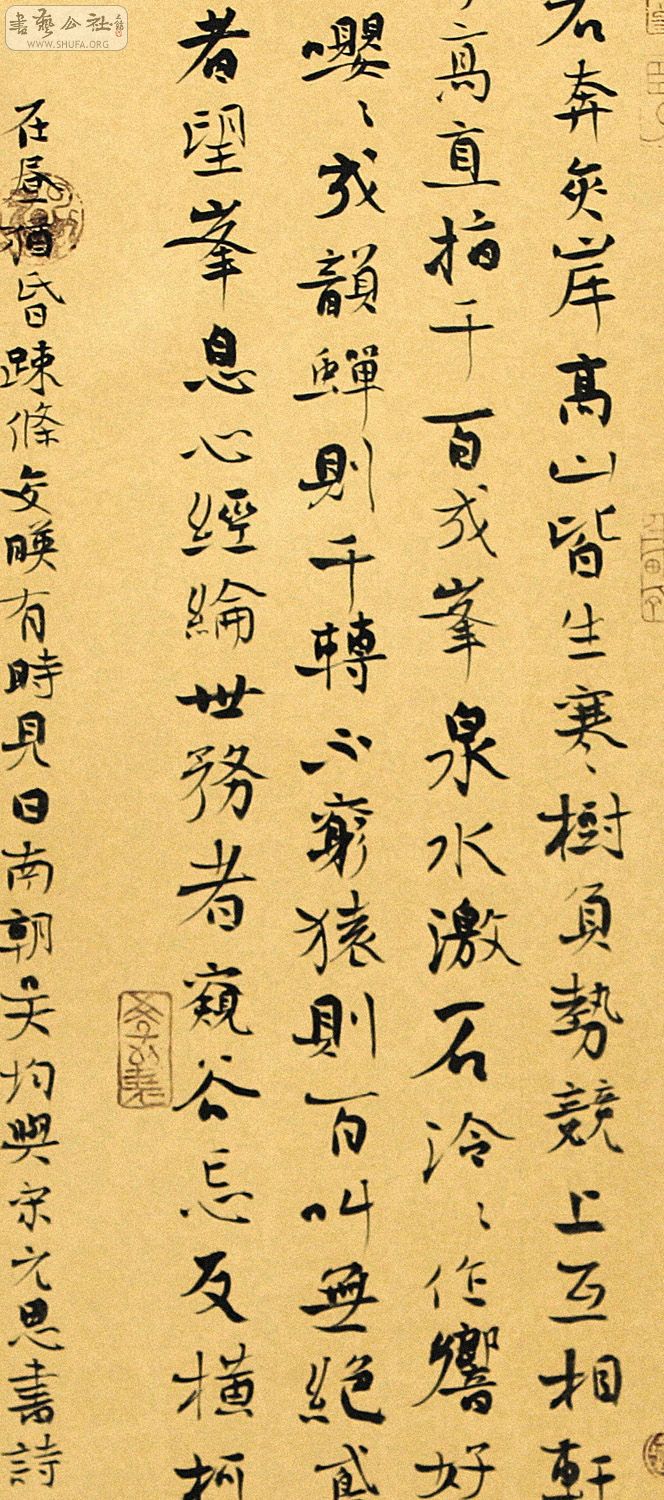 書藝公社
WWW.SHUFA.ORG
奔夾岸高山皆生寒樹負勢競上互相軒
高直指千百成峯泉水激石泠〻作響好
嚶〻成韻蟬則千轉不窮猿則百叫無絕
者望峯息心經綸世務者窺谷忘反橫柯
在晝猶昏踈條交暎有時見日南朝吳均與宋元思書詩